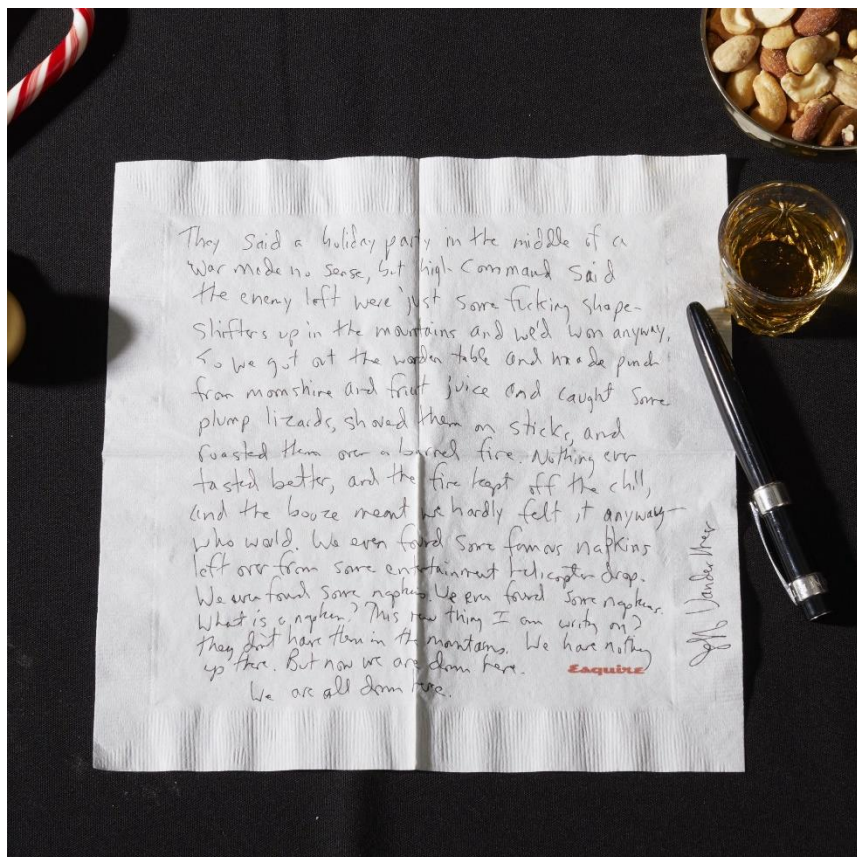 They said a holiday party in the middle of a
war made no sense, but high command said
the enemy left were just some fucking shape-
shifters up in the mountains and we'd won anyway.
So we got out the wooden table and made punch
from moonshine and fruit juice and caught some
plump lizards, shoved them on sticks, and
roasted them over a barrel fire. Nothing ever
tasted better, and the fire kept off the chill,
and the booze meant we hardly felt it anyway—
who would. We even found some famous napkins
left over from some entertainment helicopter drop.
We even found some napkins. We even found some napkins.
What is a napkin? This raw thing I am writing on?
They don't have them in the mountains. We have nothing
up there. But now we are down here.
We are all down here.
Esquire
Jeff VanderMeer